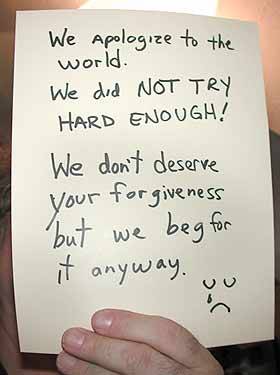 We Apologize to the
world.
We did NOT TRY
HARD ENOUGH!
We don't deserve
your forgiveness
but we beg for
it anyway.